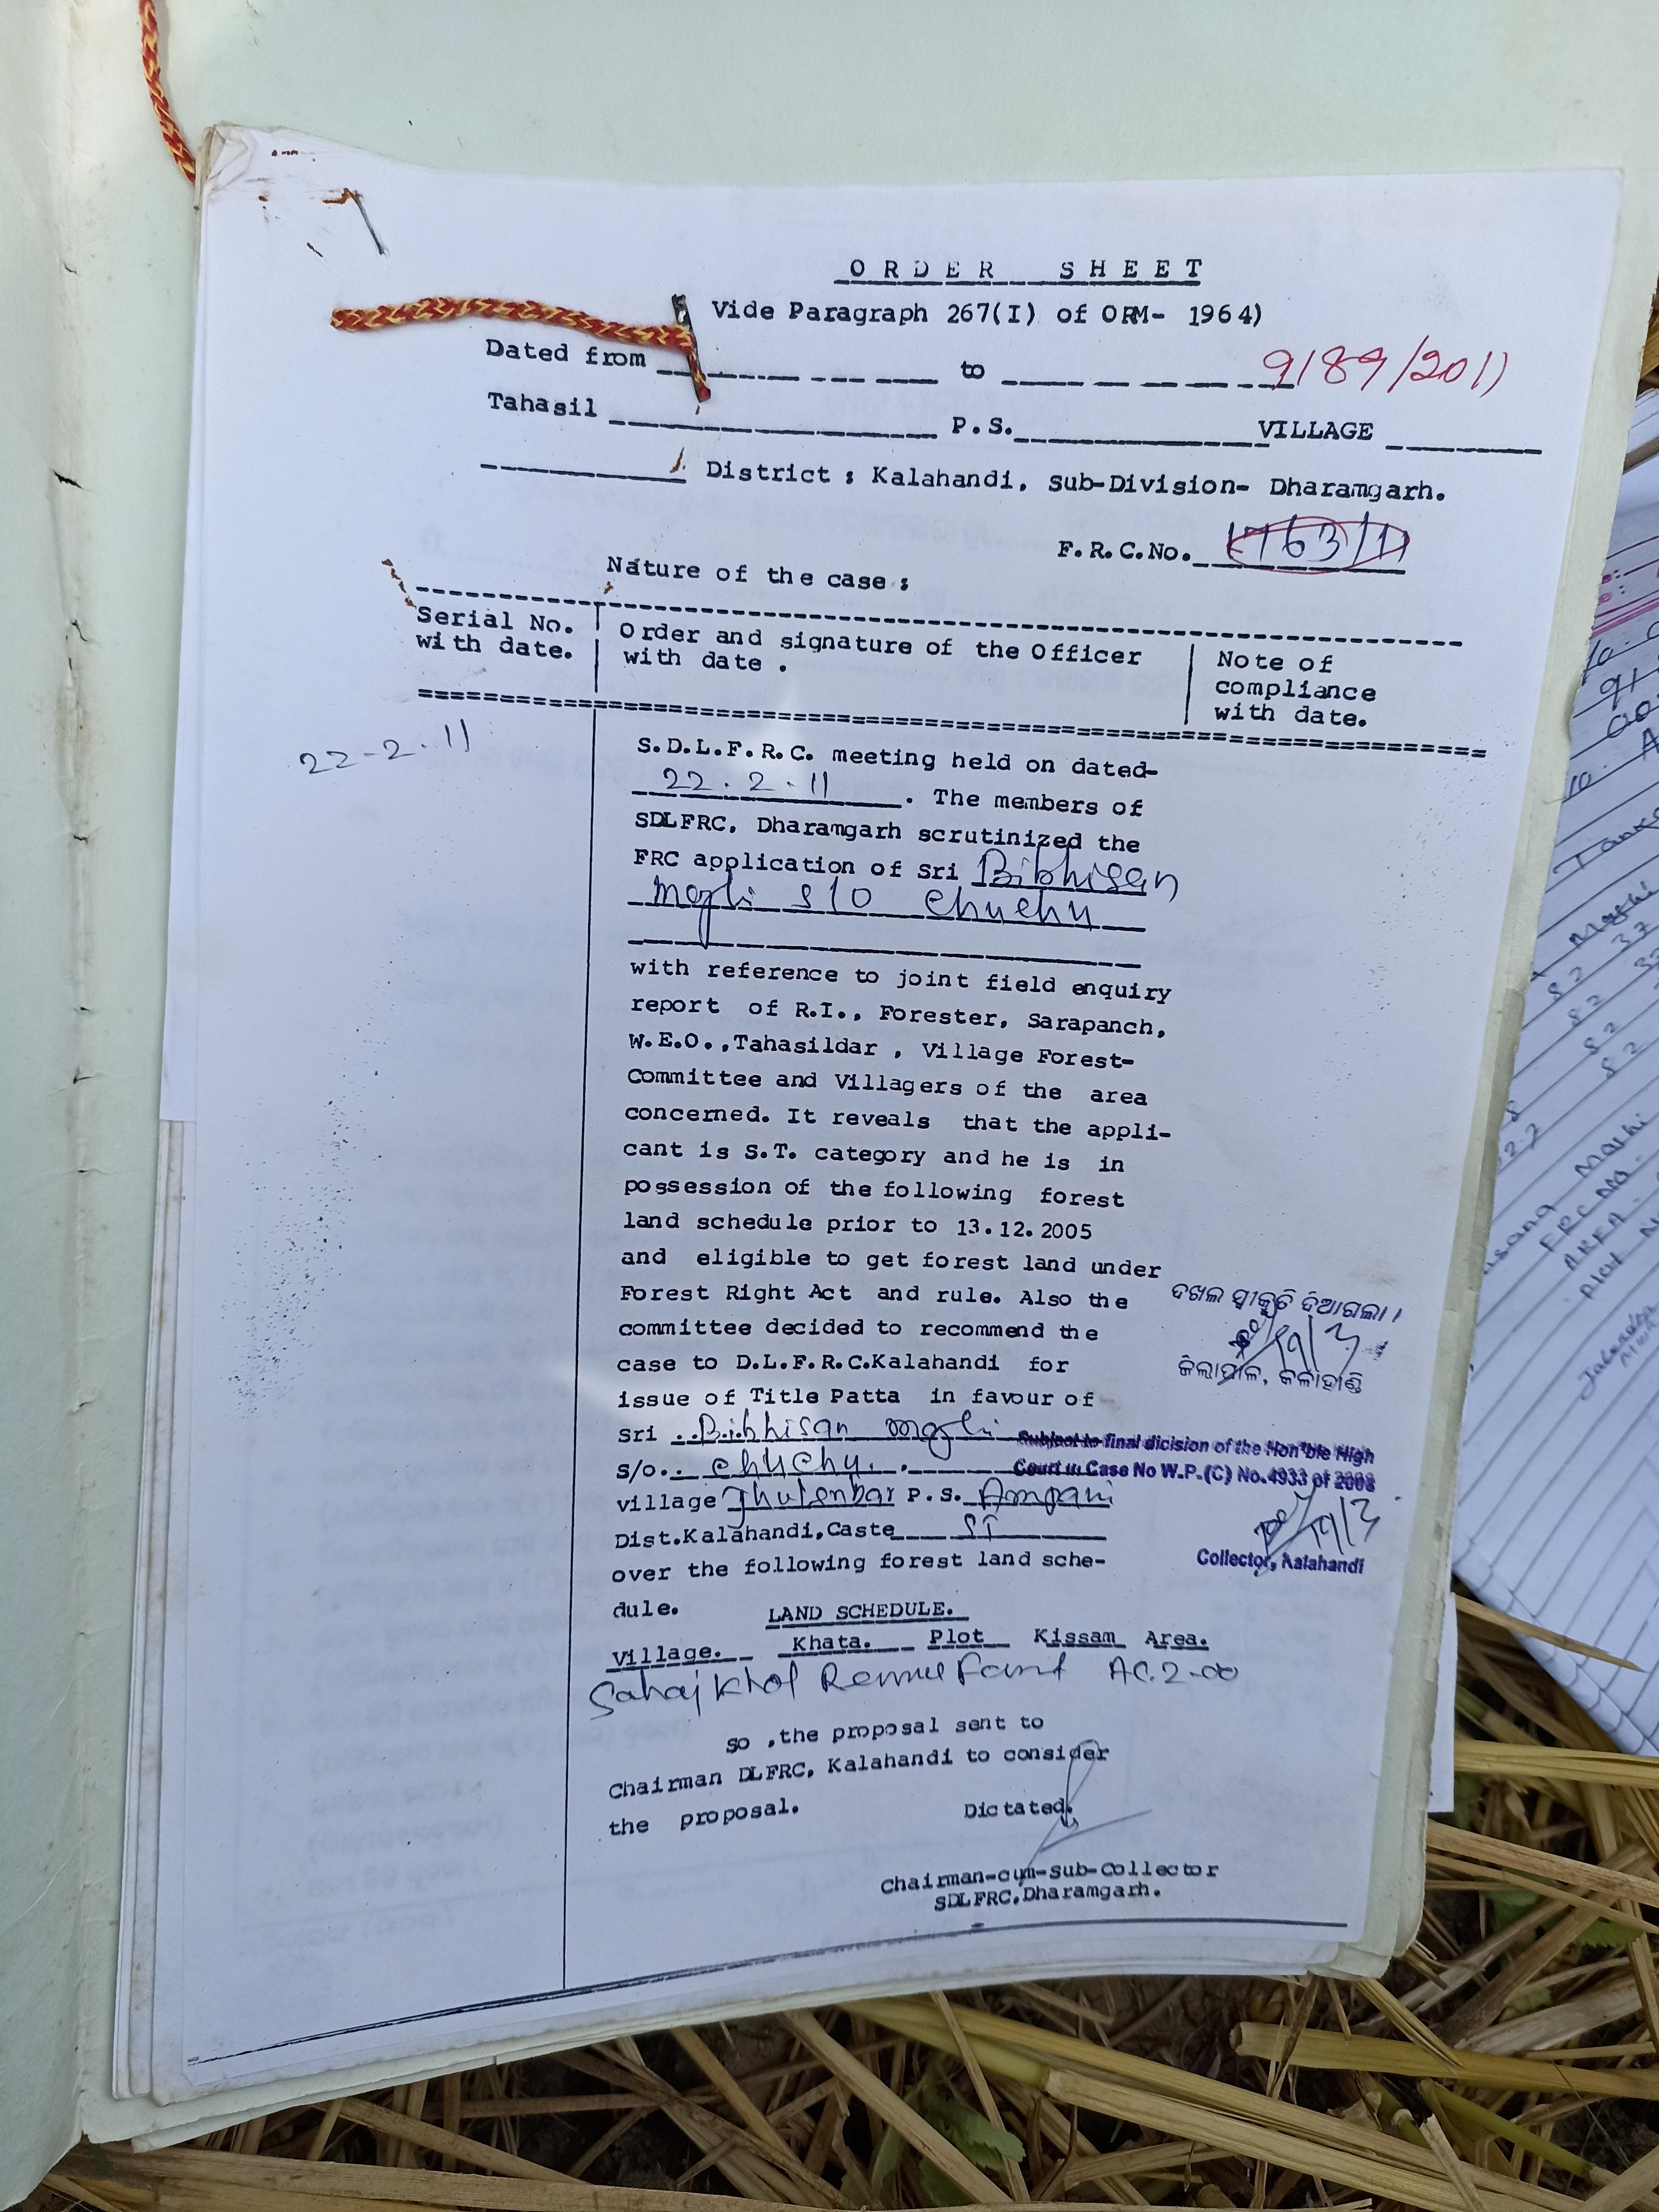 ORDER SHEET
Vide Paragraph 267(I) of ORM- 1964)
Dated from to 9189/2011
Tahasil P.S. VILLAGE
District : Kalahandi, Sub-Division- Dharamgarh.
F.R.C.No. 1763/11
Nature of the case :
Serial No. with date.
Order and signature of the Officer with date .
Note of compliance with date.
22-2-11
S.D.L.F.R.C. meeting held on dated-
22.2.11 . The members of
SDLFRC, Dharamgarh scrutinized the
FRC application of Sri Bibhisan
Majhi S/O Chuchu
with reference to joint field enquiry
report of R.I., Forester, Sarapanch,
W.E.O.,Tahasildar , Village Forest-
Committee and Villagers of the area
concerned. It reveals that the appli-
cant is S.T. category and he is in
possession of the following forest
land schedule prior to 13.12.2005
and eligible to get forest land under
Forest Right Act and rule. Also the
committee decided to recommend the
case to D.L.F.R.C.Kalahandi for
issue of Title Patta in favour of
Sri ..Bibhisan Majhi
S/o.. Chuchu. .
village P.S. Ampani
Dist.Kalahandi,Caste ST
over the following forest land sche-
dule.
ଦଖଲ ସ୍ୱୀକୃତି ଦିଆଗଲା।
ଜିଲାପାଳ, କଳାହାଣ୍ଡି
Subject to final dicision of the Hon'ble High
Court in Case No W.P.(C) No.4933 of 2008
Collector, Kalahandi
LAND SCHEDULE.
Village. Khata. Plot Kissam Area.
Sahajkhol AC.2-00
so ,the proposal sent to
Chairman DLFRC, Kalahandi to consider
the proposal.
Dictated.
Chairman-cum-Sub-Collector
SDLFRC,Dharamgarh.